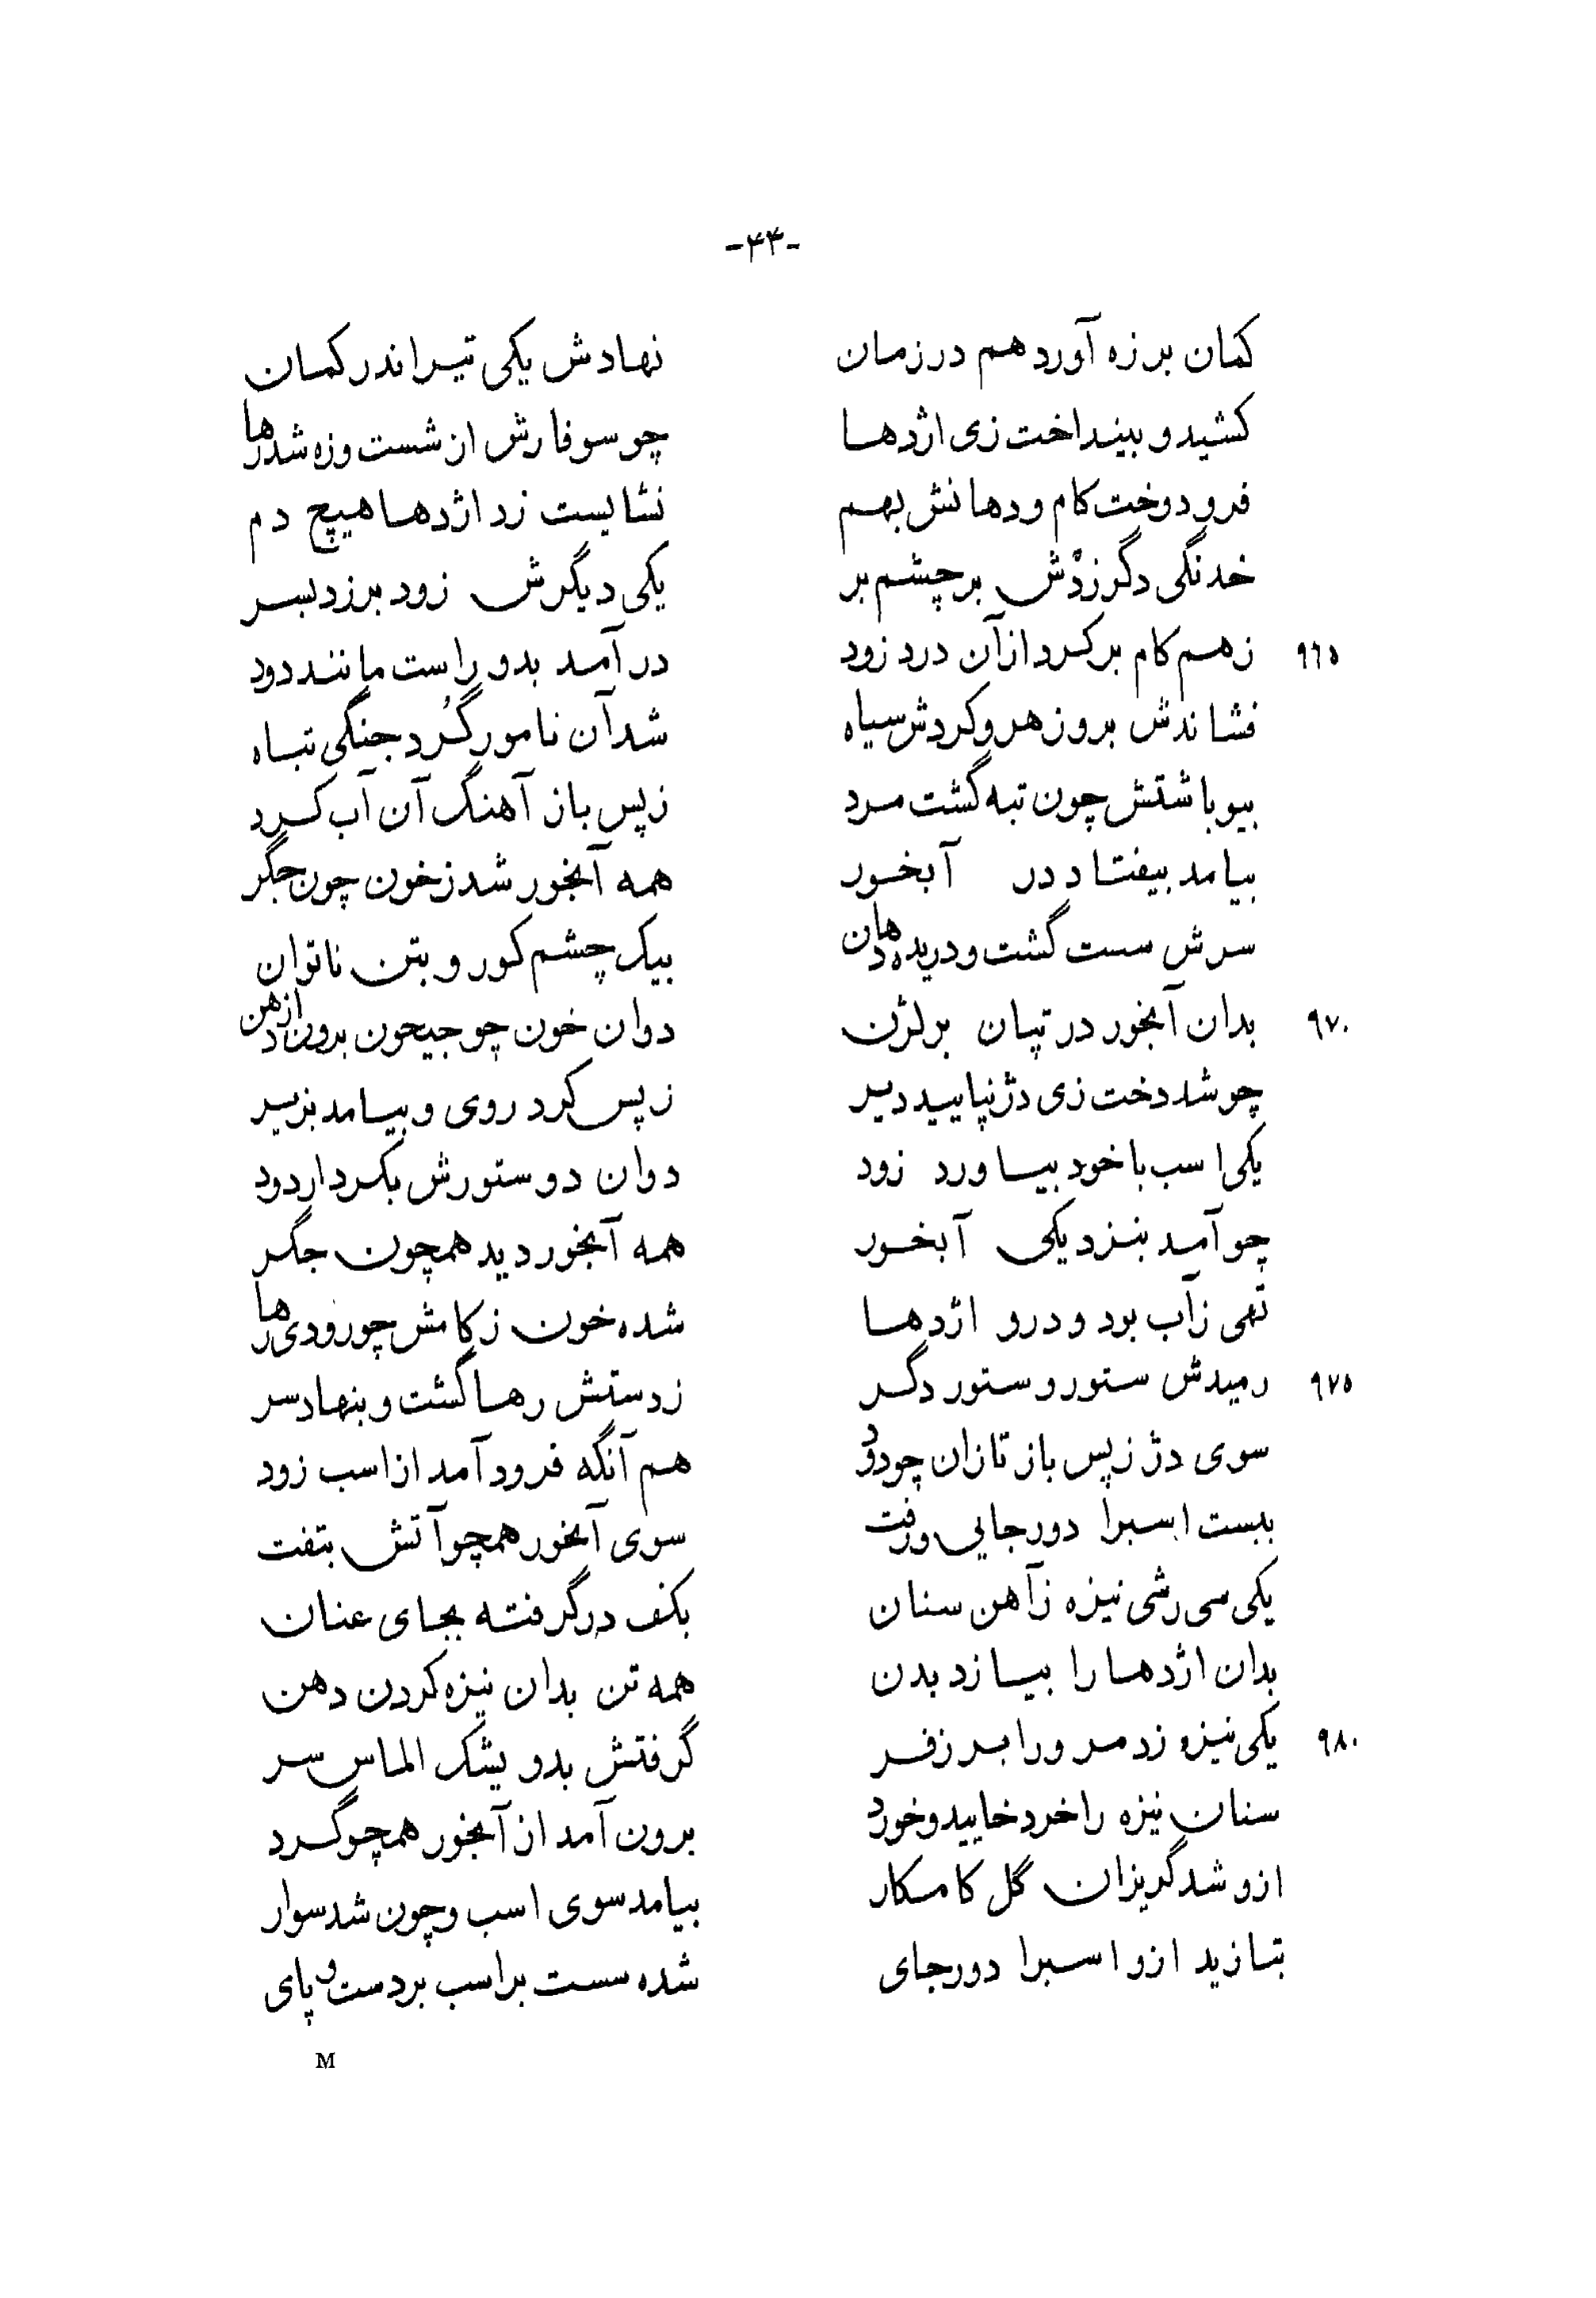 -۴۳-
کمان بر زه آورد هم در زمان نهادش یکی تیر اندر کمان
کشید و بینداخت زی اژدها چو سوفارش از شست و زه شد رها
فرو دوخت کام و دهانش بهم نشایست زد اژدها هیچ دم
خدنگی دگر زدش بر چشم بر یکی دیگرش زود بر زد بسر
۹٦۵ زهم کام بر کرد از آن درد زود در آمد بدو راست مانند دود
فشاندش برو زهر و کردش سیاه شد آن نامور گُرد جنگی تباه
بیوباشتش چون تبه گشت مرد زپس باز آهنگ آن آب کرد
بیامد بیفتاد در آبخور همه آبخور شد زخون چون جگر
سرش سست گشت و دریده دهان بیک چشم کور و بتن ناتوان
۹۷۰ بدان آبخور در تپان بر لژن دوان خون چو جیحون برون از دهن
چو شد دخت زی دژ نپایید دیر زپس کرد روی و بیامد بزیر
یکی اسب با خود بیاورد زود دوان دو ستورش بکردار دود
چو آمد بنزدیکی آبخور همه آبخور دید همچون جگر
تهی زآب بود و درو اژدها شده خون زکامش چو رودی رها
۹۷۵ رمیدش ستور و ستور دگر زدستش رها گشت و بنهاد سر
سوی دژ زپس باز تازان چو دود هم آنگه فرود آمد از اسب زود
ببست اسبرا دور جایی و رفت سوی آبخور همچو آتش بتفت
یکی سی رشی نیزه زآهن سنان بکف در گرفته بجای عنان
بدان اژدها را بیازد بدن همه تن بدان نیزه کردن دهن
۹۸۰ یکی نیزه زد مر ورا بر زفر گرفتش بدو یشک الماس سر
سنان نیزه را خرد خایید و خورد برون آمد از آبخور همچو گرد
ازو شد گریزان گل کامکار بیامد سوی اسب و چون شد سوار
بتازید ازو اسبرا دور جای شده سست بر اسب بر دست و پای
M